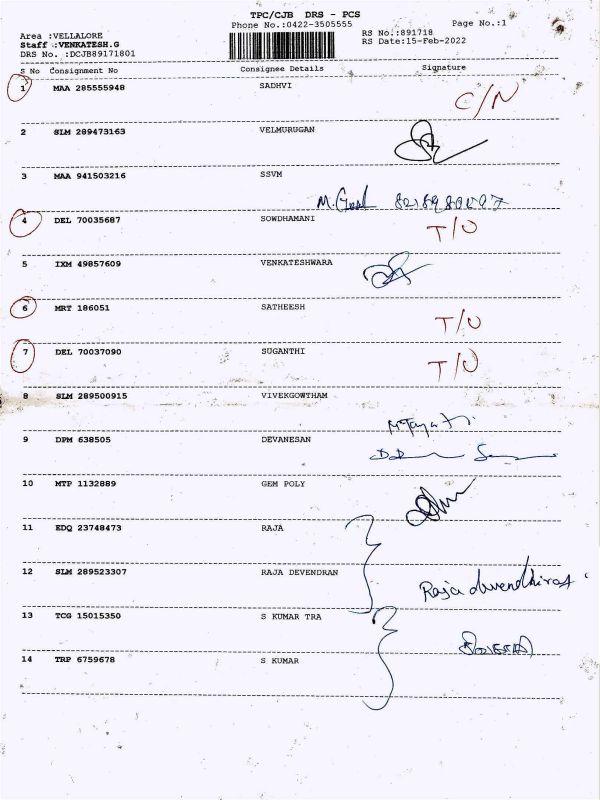 TPC/CJB DRS - PCS
Phone No.:0422-3505555 Page No.:1
Area :VELLALORE RS No.:891718
Staff :VENKATESH.G RS Date:15-Feb-2022
DRS No. :DCJB89171801
S No Consignment No Consignee Details Signature
1 MAA 285555948 SADHVI C/N
2 SLM 289473163 VELMURUGAN
3 MAA 941503216 SSVM
4 DEL 70035687 SOWDHAMANI T/O
5 IXM 49857609 VENKATESHWARA
6 MRT 186051 SATHEESH T/O
7 DEL 70037090 SUGANTHI T/O
8 SLM 289500915 VIVEKGOWTHAM
9 DPM 638505 DEVANESAN
10 MTP 1132889 GEM POLY
11 EDQ 23748473 RAJA
12 SLM 289523307 RAJA DEVENDRAN
13 TCG 15015350 S KUMAR TRA
14 TRP 6759678 S KUMAR